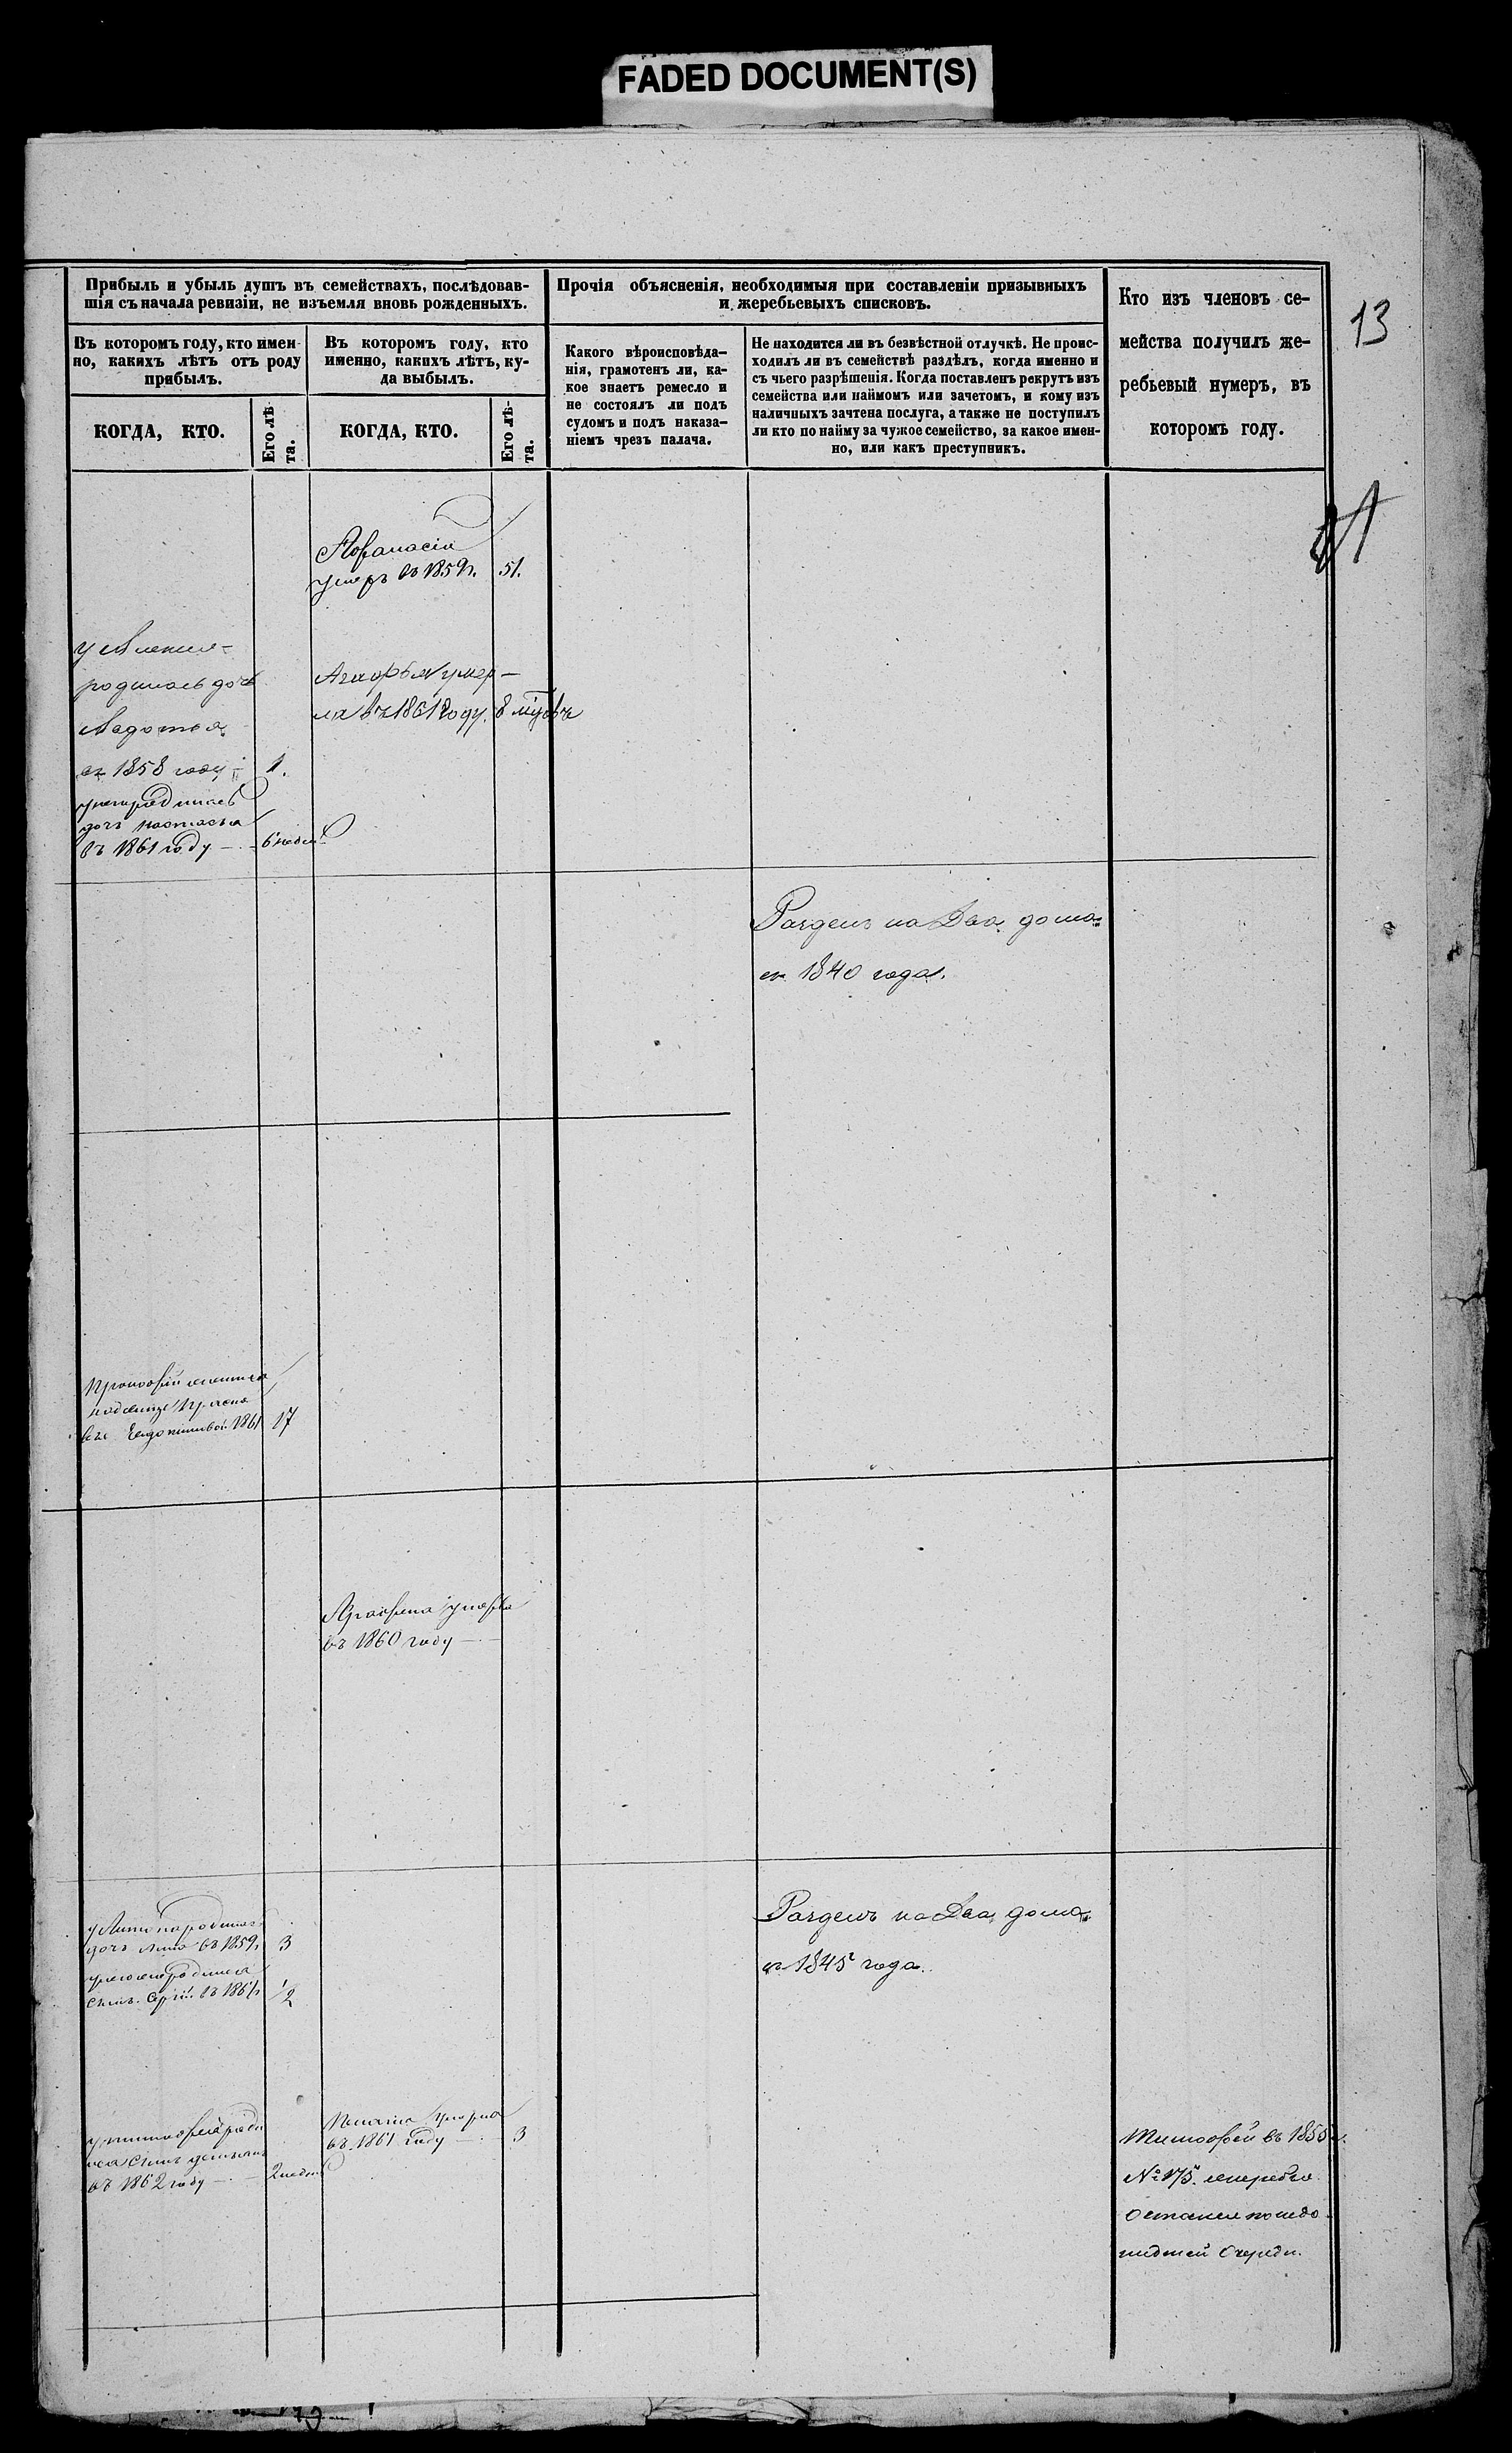 FADED DOCUMENT(S)
13
Прибыль и убыль душъ въ семействахъ, послѣдовав-
шія съ начала ревизіи, не изъемля вновь рожденныхъ.
Въ которомъ году, кто имен-
но, какихъ лѣтъ отъ роду
прибылъ.
КОГДА, КТО.
Его лѣ-
та.
Въ которомъ году, кто
именно, какихъ лѣтъ, ку-
да выбылъ.
КОГДА, КТО.
Его лѣ-
та.
Прочія объясненія, необходимыя при составленіи призывныхъ
и жеребьевыхъ списковъ.
Какого вѣроисповѣда-
нія, грамотенъ ли, ка-
кое знаетъ ремесло и
не состоялъ ли подъ
судомъ и подъ наказа-
ніемъ чрезъ палача.
Не находится ли въ безвѣстной отлучкѣ. Не проис-
ходилъ ли въ семействѣ раздѣлъ, когда именно и
съ чьего разрѣшенія. Когда поставленъ рекрутъ изъ
семейства или наймомъ или зачетомъ, и кому изъ
наличныхъ зачтена послуга, а также не поступилъ
ли кто по найму за чужое семейство, за какое имен-
но, или какъ преступникъ.
Кто изъ членовъ се-
мейства получилъ же-
ребьевый нумеръ, въ
которомъ году.
Афанасій
умеръ въ 1859г. 51.
родилась дочь
Авдотья
въ 1858 году 1.
Агафья умер-
ла въ 1861 году. 8
дочь Настасья
въ 1861 году 6 недель
Разделъ на Два дома
съ 1840 года.
1861 17
Аграфена умерла
въ 1860 году
дочь Анна въ 1859г 3
сынъ въ 1861г 1/2
Разделъ на Два дома
съ 1845 года.
сынъ
въ 1862 году 2 недел
умерла
въ 1861 году 3
Тимофей въ 1855 г.
№ 175. жеребья
остался по недо-
шедшей Очереди.